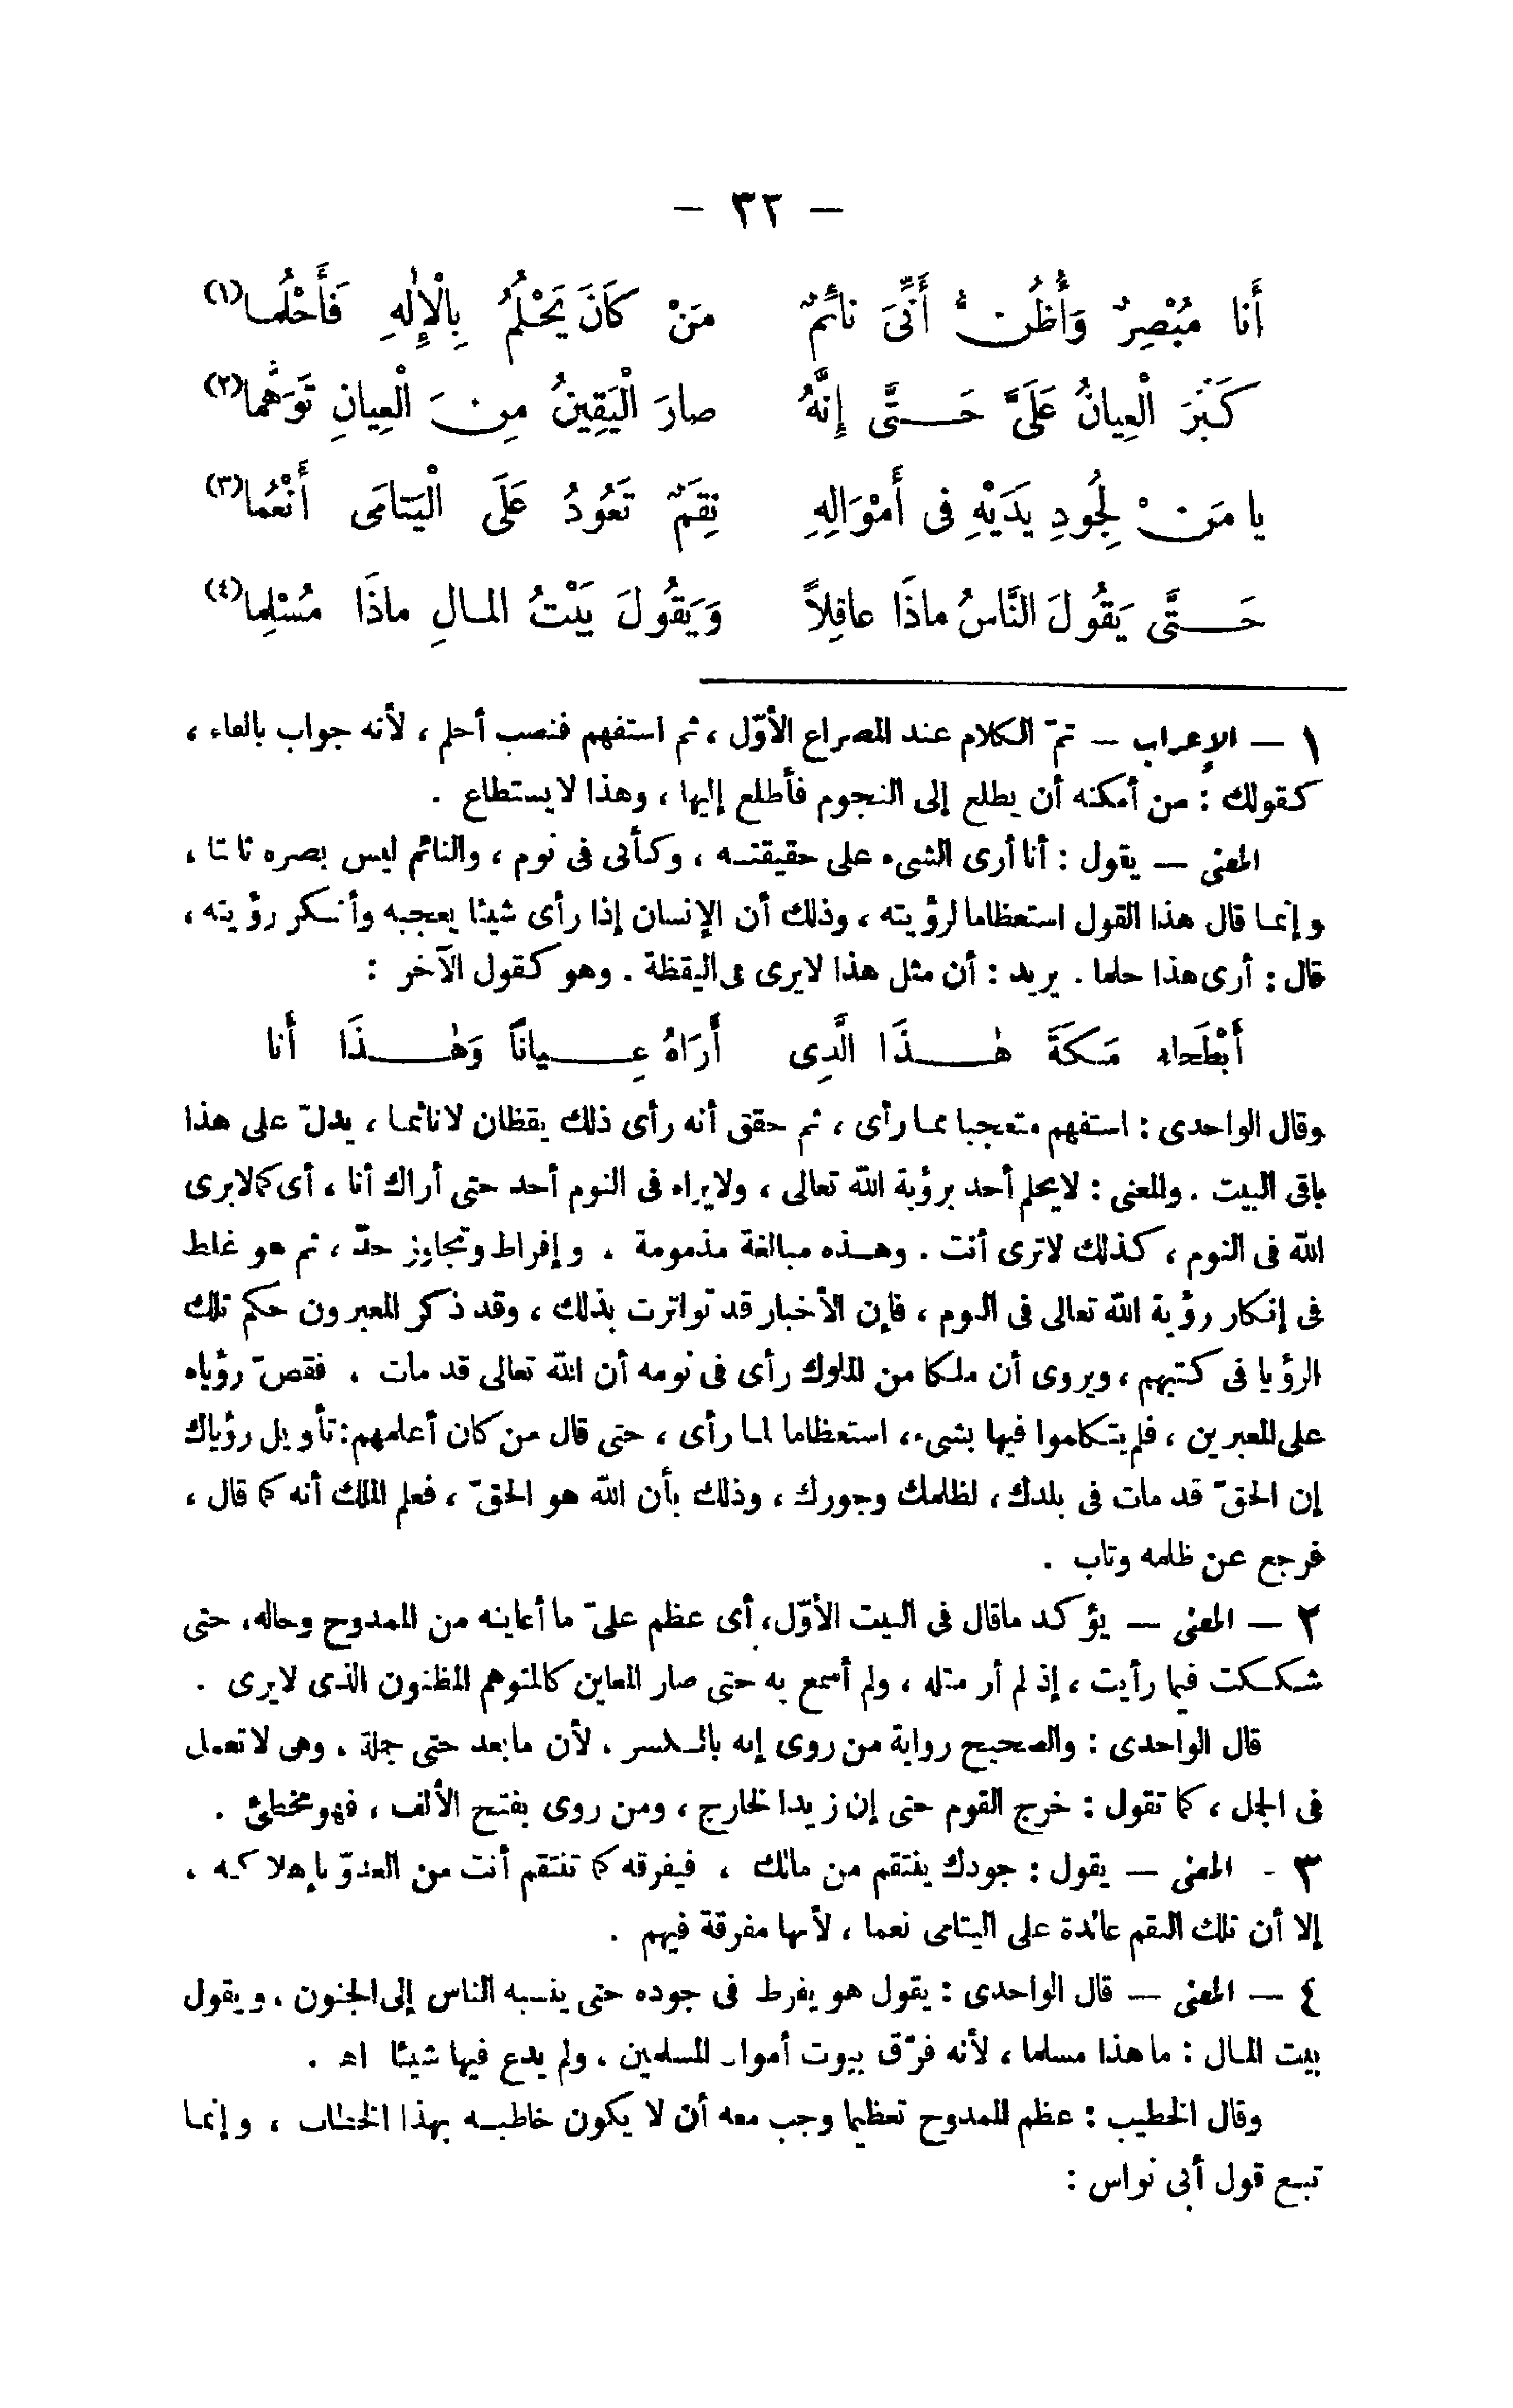 — ٣٢ —
أَنا مُبْصِرٌ وَأَظُنُّ أَنِّىَ نائمٌ مَنْ كَانَ يَحْلُمُ بِالْإِلٰهِ فَأَحْلُمَا(١)
كَبُرَ الْعِيانُ عَلَىَّ حَتَّى إِنَّهُ صارَ الْيَقِينُ مِنَ الْعِيانِ تَوَهُّما(٢)
يا مَنْ لِجُودِ يَدَيْهِ فى أَمْوَالِهِ نِقَمٌ تَعُودُ عَلَى الْيَتامَى أَنْعُمَا(٣)
حَتَّى يَقُولَ النَّاسُ ماذَا عاقِلاً وَيَقُولَ بَيْتُ المالِ ماذَا مُسْلِما(٤)
١ — الإعراب — تمّ الكلام عند المصراع الأوّل ، ثم استفهم فنصب أحلم ، لأنه جواب بالفاء ،
كقولك : من أمكنه أن يطلع إلى النجوم فأطلع إليها ، وهذا لا يستطاع .
المعنى — يقول : أنا أرى الشىء على حقيقته ، وكأنى فى نوم ، والنائم ليس بصره ثابتا ،
وإنما قال هذا القول استعظاما لرؤيته ، وذلك أن الإنسان إذا رأى شيئا يعجبه وأنكر رؤيته ،
قال : أرى هذا حلما . يريد : أن مثل هذا لايرى فى اليقظة . وهو كقول الآخر :
أَبَطْحاء مَكَّةَ هٰذَا الَّذِى أَرَاهُ عِيانًا وَهٰذَا أَنا
وقال الواحدى : استفهم متعجبا مما رأى ، ثم حقق أنه رأى ذلك يقظان لا نائما ، يدلّ على هذا
باقى البيت . والمعنى : لايحلم أحد برؤية الله تعالى ، ولايراه فى النوم أحد حتى أراك أنا ، أى كما لايرى
الله فى النوم ، كذلك لاترى أنت . وهذه مبالغة مذمومة . وإفراط وتجاوز حدّ ، ثم هو غلط
فى إنكار رؤية الله تعالى فى النوم ، فإن الأخبار قد تواترت بذلك ، وقد ذكر المعبرون حكم تلك
الرؤيا فى كتبهم ، ويروى أن ملكا من الملوك رأى فى نومه أن الله تعالى قد مات . فقصّ رؤياه
على المعبرين ، فلم يتكلموا فيها بشىء، استعظاما لما رأى ، حتى قال من كان أعلمهم: تأويل رؤياك
إن الحقّ قد مات فى بلدك، لظلمك وجورك ، وذلك بأن الله هو الحقّ ، فعلم الملك أنه كما قال ،
فرجع عن ظلمه وتاب .
٢ — المعنى — يؤكد ماقال فى البيت الأوّل، أى عظم علىّ ما أعاينه من الممدوح وحاله، حتى
شككت فيما رأيت ، إذ لم أر مثله ، ولم أسمع به حتى صار المعاين كالمتوهم المظنون الذى لايرى .
قال الواحدى : والصحيح رواية من روى إنه بالكسر . لأن مابعد حتى جملة . وهى لاتعمل
فى الجمل ، كما تقول : خرج القوم حتى إن زيدا لخارج ، ومن روى بفتح الألف ، فهو مخطئ .
٣ - المعنى — يقول : جودك ينتقم من مالك ، فيفرقه كما تنتقم أنت من العدوّ بإهلاكه ،
إلا أن تلك النقم عائدة على اليتامى نعما ، لأنها مفرقة فيهم .
٤ — المعنى — قال الواحدى : يقول هو يفرط فى جوده حتى ينسبه الناس إلى الجنون . ويقول
بيت المال : ماهذا مسلما ، لأنه فرّق بيوت أموال المسلمين . ولم يدع فيها شيئا اه .
وقال الخطيب : عظم الممدوح تعظيما وجب معه أن لا يكون خاطبه بهذا الخطاب ، وإنما
تبع قول أبى نواس :